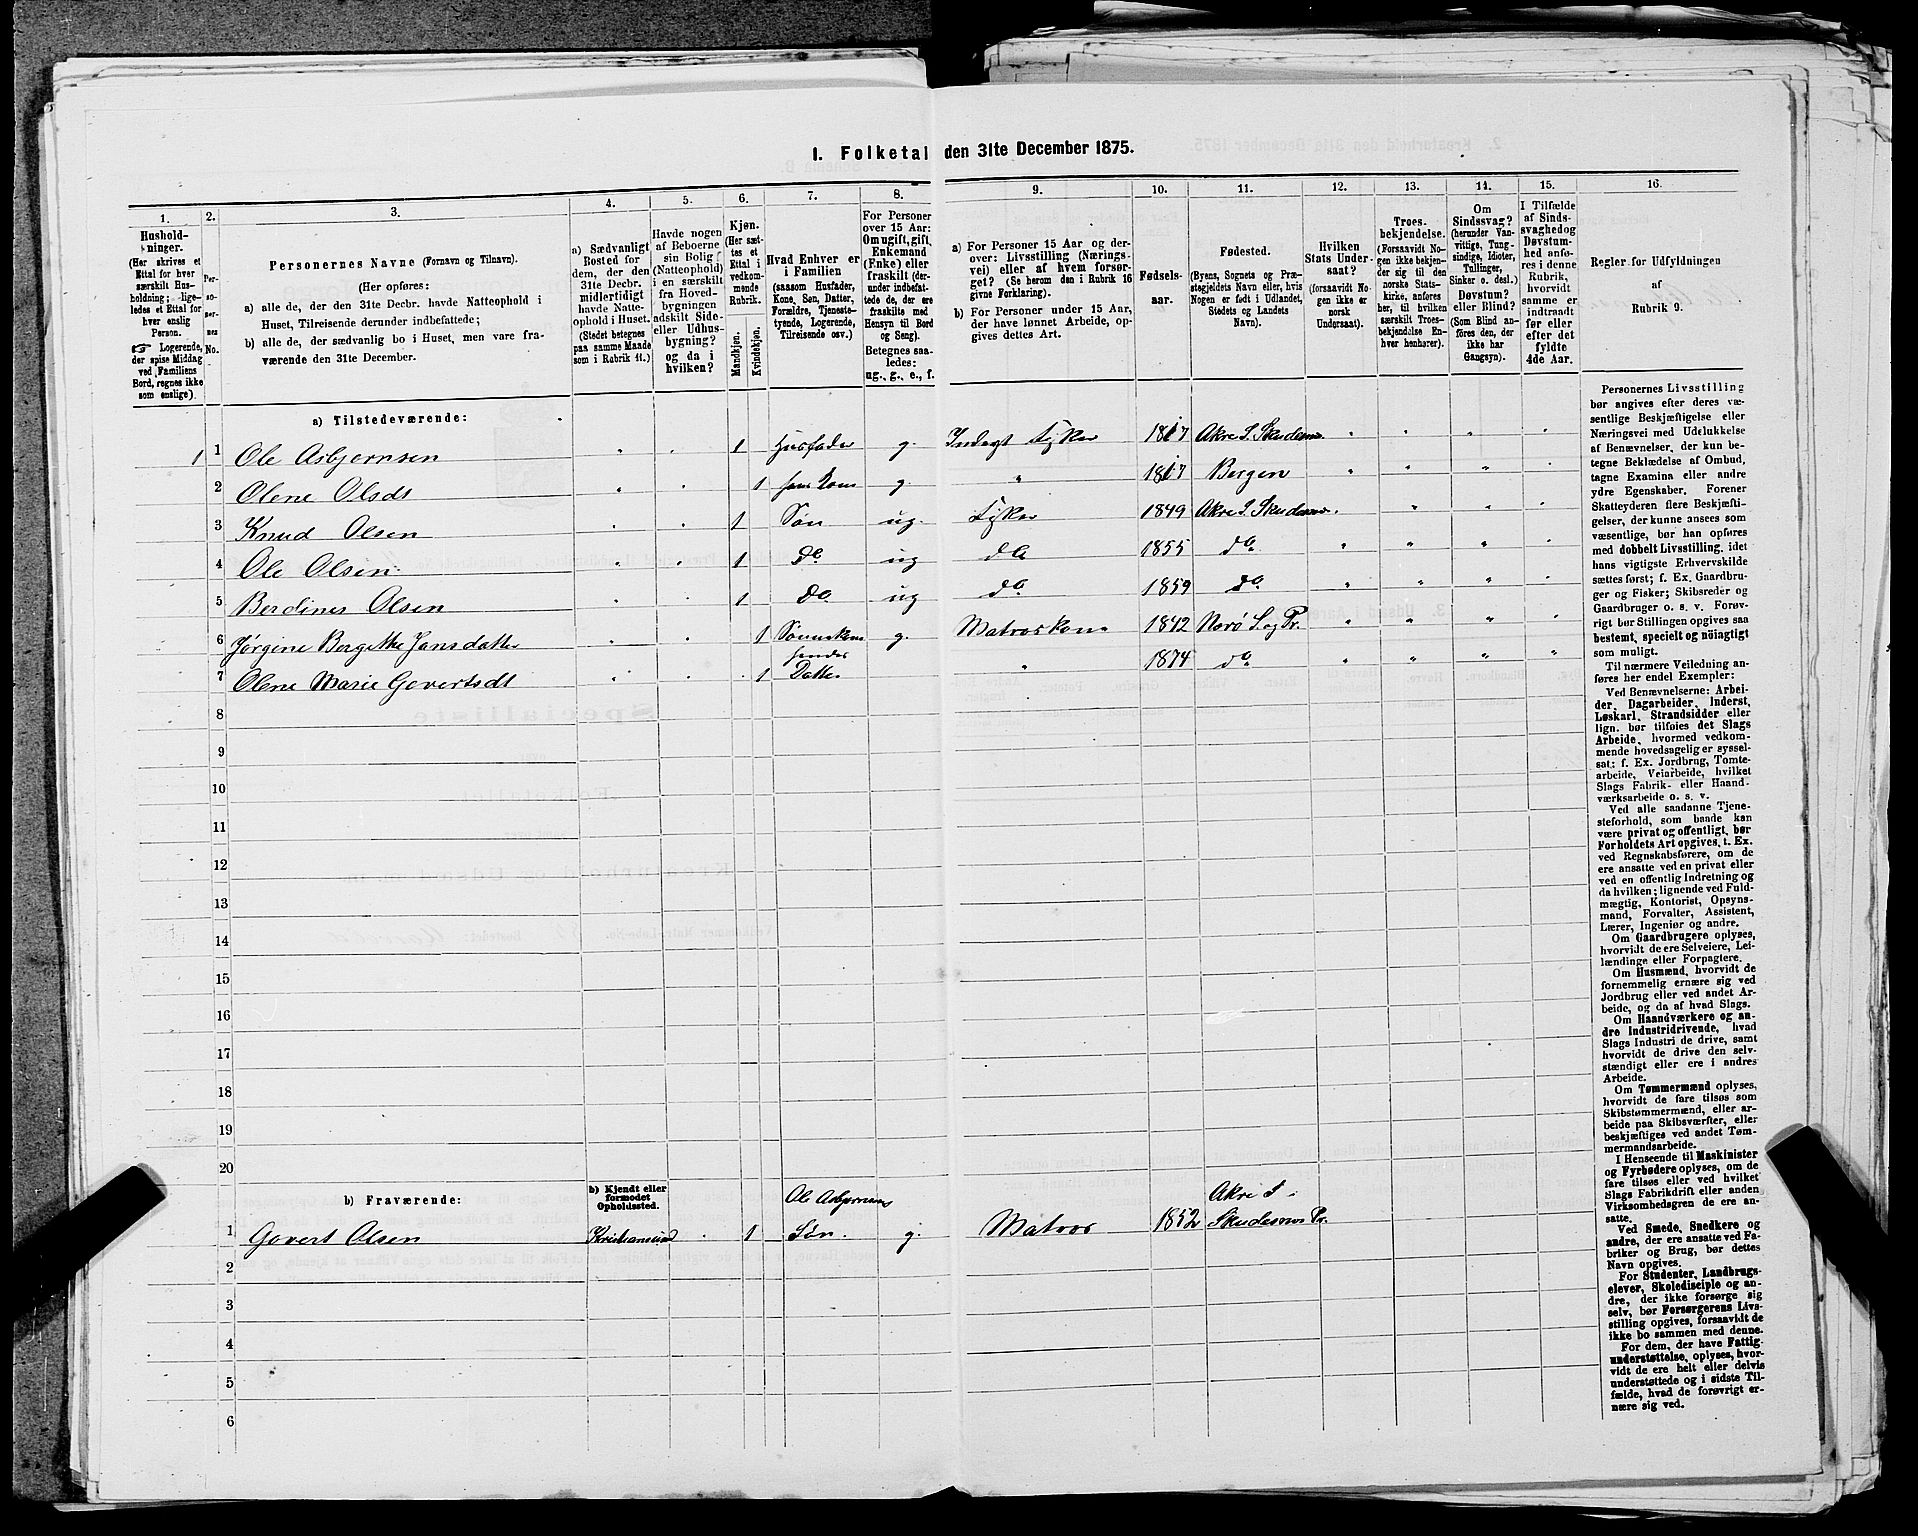 I. Folketal den 31te December 1875.
1. 2. 3. 4. 5. 6. 7. 8. 9. 10. 11. 12. 13. 14. 15. 16.
Hushold-
ninger.
(Her skrives et
Ettal for hver
særskilt Hus-
holdning; lige-
ledes et Ettal for
hver enslig
Person.
☞ Logerende,
der spise Middag
ved Familiens
Bord, regnes ikke
som enslige).
Per-
so-
ner-
nes
No.
Personernes Navne (Fornavn og Tilnavn).
(Her opføres:
a) alle de, der den 31te Decbr. havde Natteophold i
Huset, Tilreisende derunder indbefattede;
b) alle de, der sædvanlig bo i Huset, men vare fra-
værende den 31te December.
a) Sædvanligt
Bosted for
dem, der den
31te Decbr.
midlertidigt
havde Natte-
ophold i Huset.
(Stedet betegnes
paa samme Maade
som i Rubrik 11.)
Havde nogen
af Beboerne
sin Bolig
(Natteophold)
i en særskilt
fra Hoved-
bygningen
adskilt Side-
eller Udhus-
bygning?
og da i
hvilken?
Kjøn.
(Her sæt-
tes et
Ettal i
vedkom-
mende
Rubrik.
Mandkjøn.
Kvindekjøn.
Hvad Enhver er
i Familien
(saasom Husfader,
Kone, Søn, Datter,
Forældre, Tjeneste-
tyende, Logerende,
Tilreisende osv.)
For Personer
over 15 Aar:
Om ugift, gift,
Enkemand
(Enke) eller
fraskilt (der-
under indbefat-
tede de, der ere
fraskilte med
Hensyn til Bord
og Seng).
Betegnes saa-
ledes:
ug., g., e., f.
a) For Personer 15 Aar og der-
over: Livsstilling (Nærings-
vei) eller af hvem forsør-
get? (Se herom den i Rubrik 16
givne Forklaring).
b) For Personer under 15 Aar,
der have lønnet Arbeide, op-
gives dettes Art.
Fødsels-
aar.
Fødested.
(Byens, Sognets og Præ-
stegjeldets Navn eller, hvis
Nogen er født i Udlandet,
Stedets og Landets
Navn).
Hvilken
Stats Under-
saat?
(forsaavidt No-
gen ikke er
norsk
Undersaat).
Troes-
bekjendelse.
(Forsaavidt No-
gen ikke bekjen-
der sig til den
norske Stats-
kirke, anføres
her, til hvilken
særskilt Troes-
bekjendelse En-
hver henhører).
Om
Sindssvag?
(herunder Van-
vittige, Tung-
sindige, Idioter,
Tullinger,
Sinker o. desl.)
Døvstum?
eller Blind?
(Som Blind an-
føres den, der
ikke har
Gangsyn).
I Tilfælde
af Sinds-
svaghed og
Døvstum-
hed anføres
i denne
Rubrik,
hvorvidt
samme er
indtraadt
før eller
efter det
fyldte
4de Aar.
Regler for Udfyldningen
af
Rubrik 9.
a) Tilstedeværende:
1 1 Ole Asbjørnsen 1 Husfader g. Indsgt Fisker 1817 Akre S. Skudesnæs
2 Olene Olsdt 1 hans Kone g. " 1817 Bergen
3 Knud Olsen 1 Søn ug. Fisker 1849 Akre S. Skudesnæs
4 Ole Olsen 1 Do ug do 1855 do
5 Berdines Olsen 1 Do ug do 1859 do
6 Jørgine Bergitthe Jansdatter 1 Sønnekone g. Matroskone 1842 Nerø S. og Pr.
7 Olene Marie Govertsdt 1 hendes Datter " 1874 do
8
9
10
11
12
13
14
15
16
17
18
19
20
b) Fraværende:
b) Kjendt eller
formodet
Opholdssted.
1 Govert Olsen Kristiansund 1 Ole Asbjørnsens Søn. g. Matros 1852 Akre S. Skudesnæs Pr.
2
3
4
5
6
Personernes Livsstilling
bør angives efter deres væ-
sentlige Beskjæftigelse eller
Næringsvei med Udelukkelse
af Benævnelser, der kun be-
tegne Beklædelse af Ombud,
tagne Examina eller andre
ydre Egenskaber. Forener
Skatteyderen flere Beskjæfti-
gelser, der kunne ansees som
væsentlige, bør han opføres
med dobbelt Livsstilling, idet
hans vigtigste Erhvervskilde
sættes først; f. Ex. Gaardbru-
ger og Fisker; Skibsreder og
Gaardbruger o. s. v. Forøv-
rigt bør Stillingen opgives saa
bestemt, specielt og nøiagtigt
som muligt.
Til nærmere Veiledning an-
føres her endel Exempler:
Ved Benævnelserne: Arbei-
der, Dagarbeider, Inderst,
Løskarl, Strandsidder eller
lign. bør tilføies det Slags
Arbeide, hvormed vedkom-
mende hovedsagelig er syssel-
sat; f. Ex. Jordbrug, Tomte-
arbeide, Veiarbeide, hvilket
Slags Fabrik- eller Haand-
værksarbeide o. s. v.
Ved alle saadanne Tjene-
steforhold, som baade kan
være privat og offentligt, bør
Forholdets Art opgives, t. Ex.
ved Regnskabsførere, om de
ere ansatte ved en privat eller
ved en offentlig Indretning og
da hvilken; lignende ved Fuld-
mægtig, Kontorist, Opsyns-
mand, Forvalter, Assistent,
Lærer, Ingeniør og andre.
Om Gaardbrugere oplyses,
hvorvidt de ere Selveiere, Lei-
lændinge eller Forpagtere.
Om Husmænd, hvorvidt de
fornemmelig ernære sig ved
Jordbrug eller ved andet Ar-
beide, og da af hvad Slags.
Om Haandværkere og an-
dre Industridrivende, hvad
Slags Industri de drive, samt
hvorvidt de drive den selv-
stændigt eller ere i andres
Arbeide.
Om Tømmermænd oplyses,
hvorvidt de fare tilsøs som
Skibstømmermænd, eller ar-
beide paa Skibsværfter, eller
beskjæftiges ved andet Tøm-
mermandsarbeide.
I Henseende til Maskinister
og Fyrbødere oplyses, om de
fare tilsøs eller ved hvilket
Slags Fabrikdrift eller anden
Virksomhedsgren de ere an-
satte.
Ved Smede, Snedkere og
andre, der ere ansatte ved Fa-
briker og Brug, bør dettes
Navn opgives.
For Studenter, Landbrugs-
elever, Skoledisciple og an-
dre, der ikke forsørge sig
selv, bør Forsørgerens Livs-
stilling opgives, forsaavidt de
ikke bo sammen med denne.
For dem, der have Fattig-
understøttelse, oplyses, hvor-
vidt de ere helt eller delvis
understøttede og i sidste Til-
fælde, hvad de forøvrigt er-
nære sig ved.